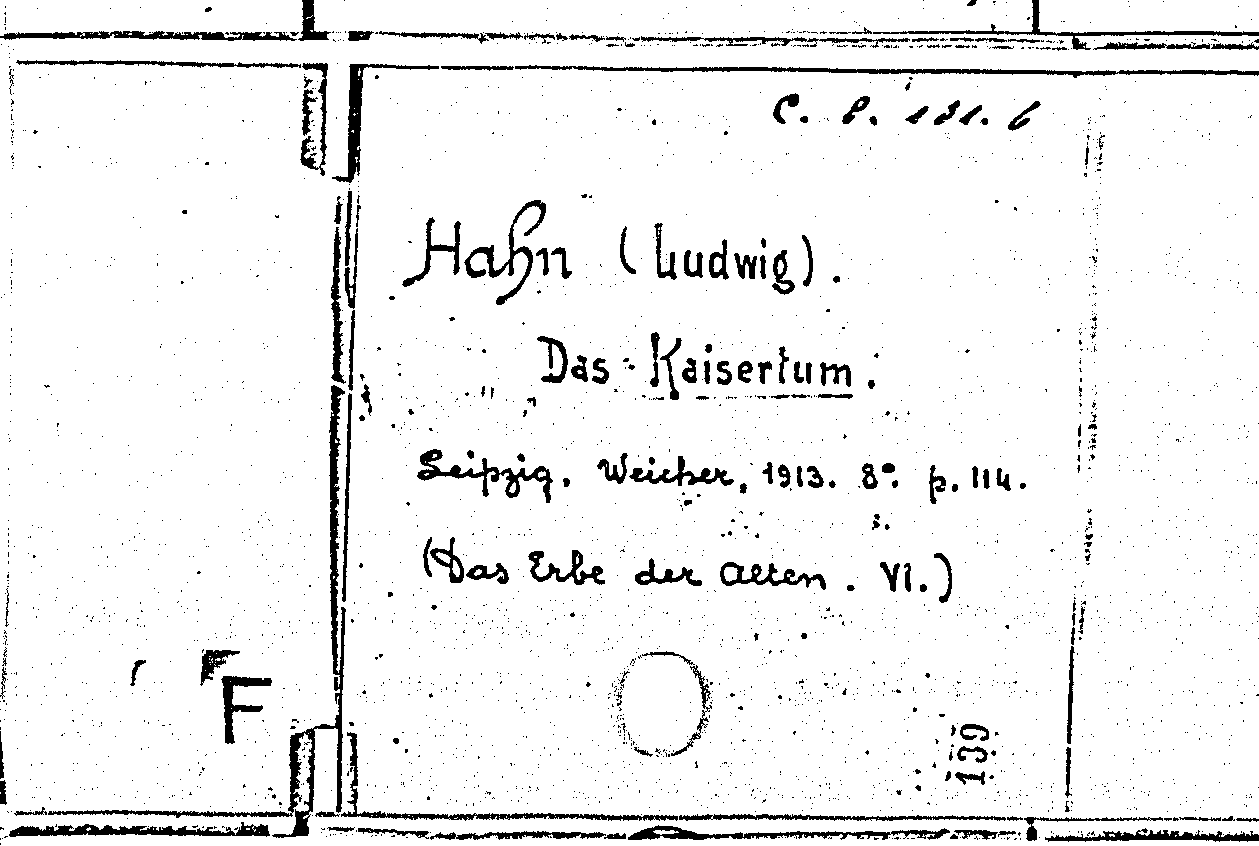 C. P. 131. 6
Hahn (Ludwig).
Das Kaisertum.
Leipzig, Weicher, 1913. 8°. p. 114.
(Das Erbe der Alten. VI.)
F
139